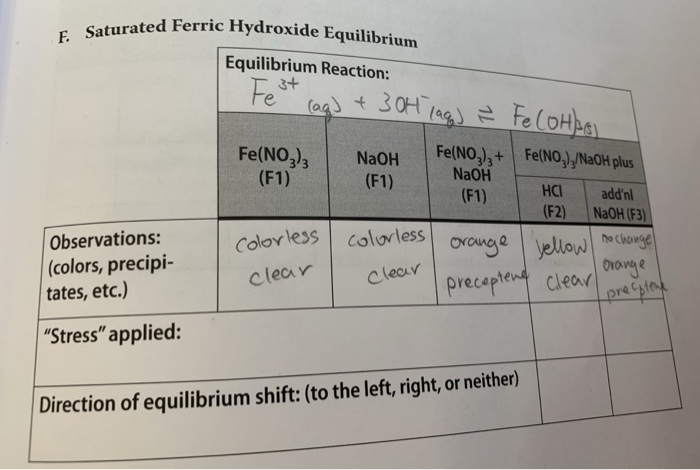 F. Saturated Ferric Hydroxide Equilibrium
Equilibrium Reaction:
Fe³⁺(aq) + 3OH⁻(aq) ⇌ Fe(OH)₃(s)
Fe(NO₃)₃
(F1)
NaOH
(F1)
Fe(NO₃)₃+
NaOH
(F1)
Fe(NO₃)₃/NaOH plus
HCl
(F2)
add'nl
NaOH (F3)
Observations:
(colors, precipi-
tates, etc.)
colorless
clear
colorless
clear
orange
preceptent
yellow
clear
no change
orange
"Stress" applied:
Direction of equilibrium shift: (to the left, right, or neither)